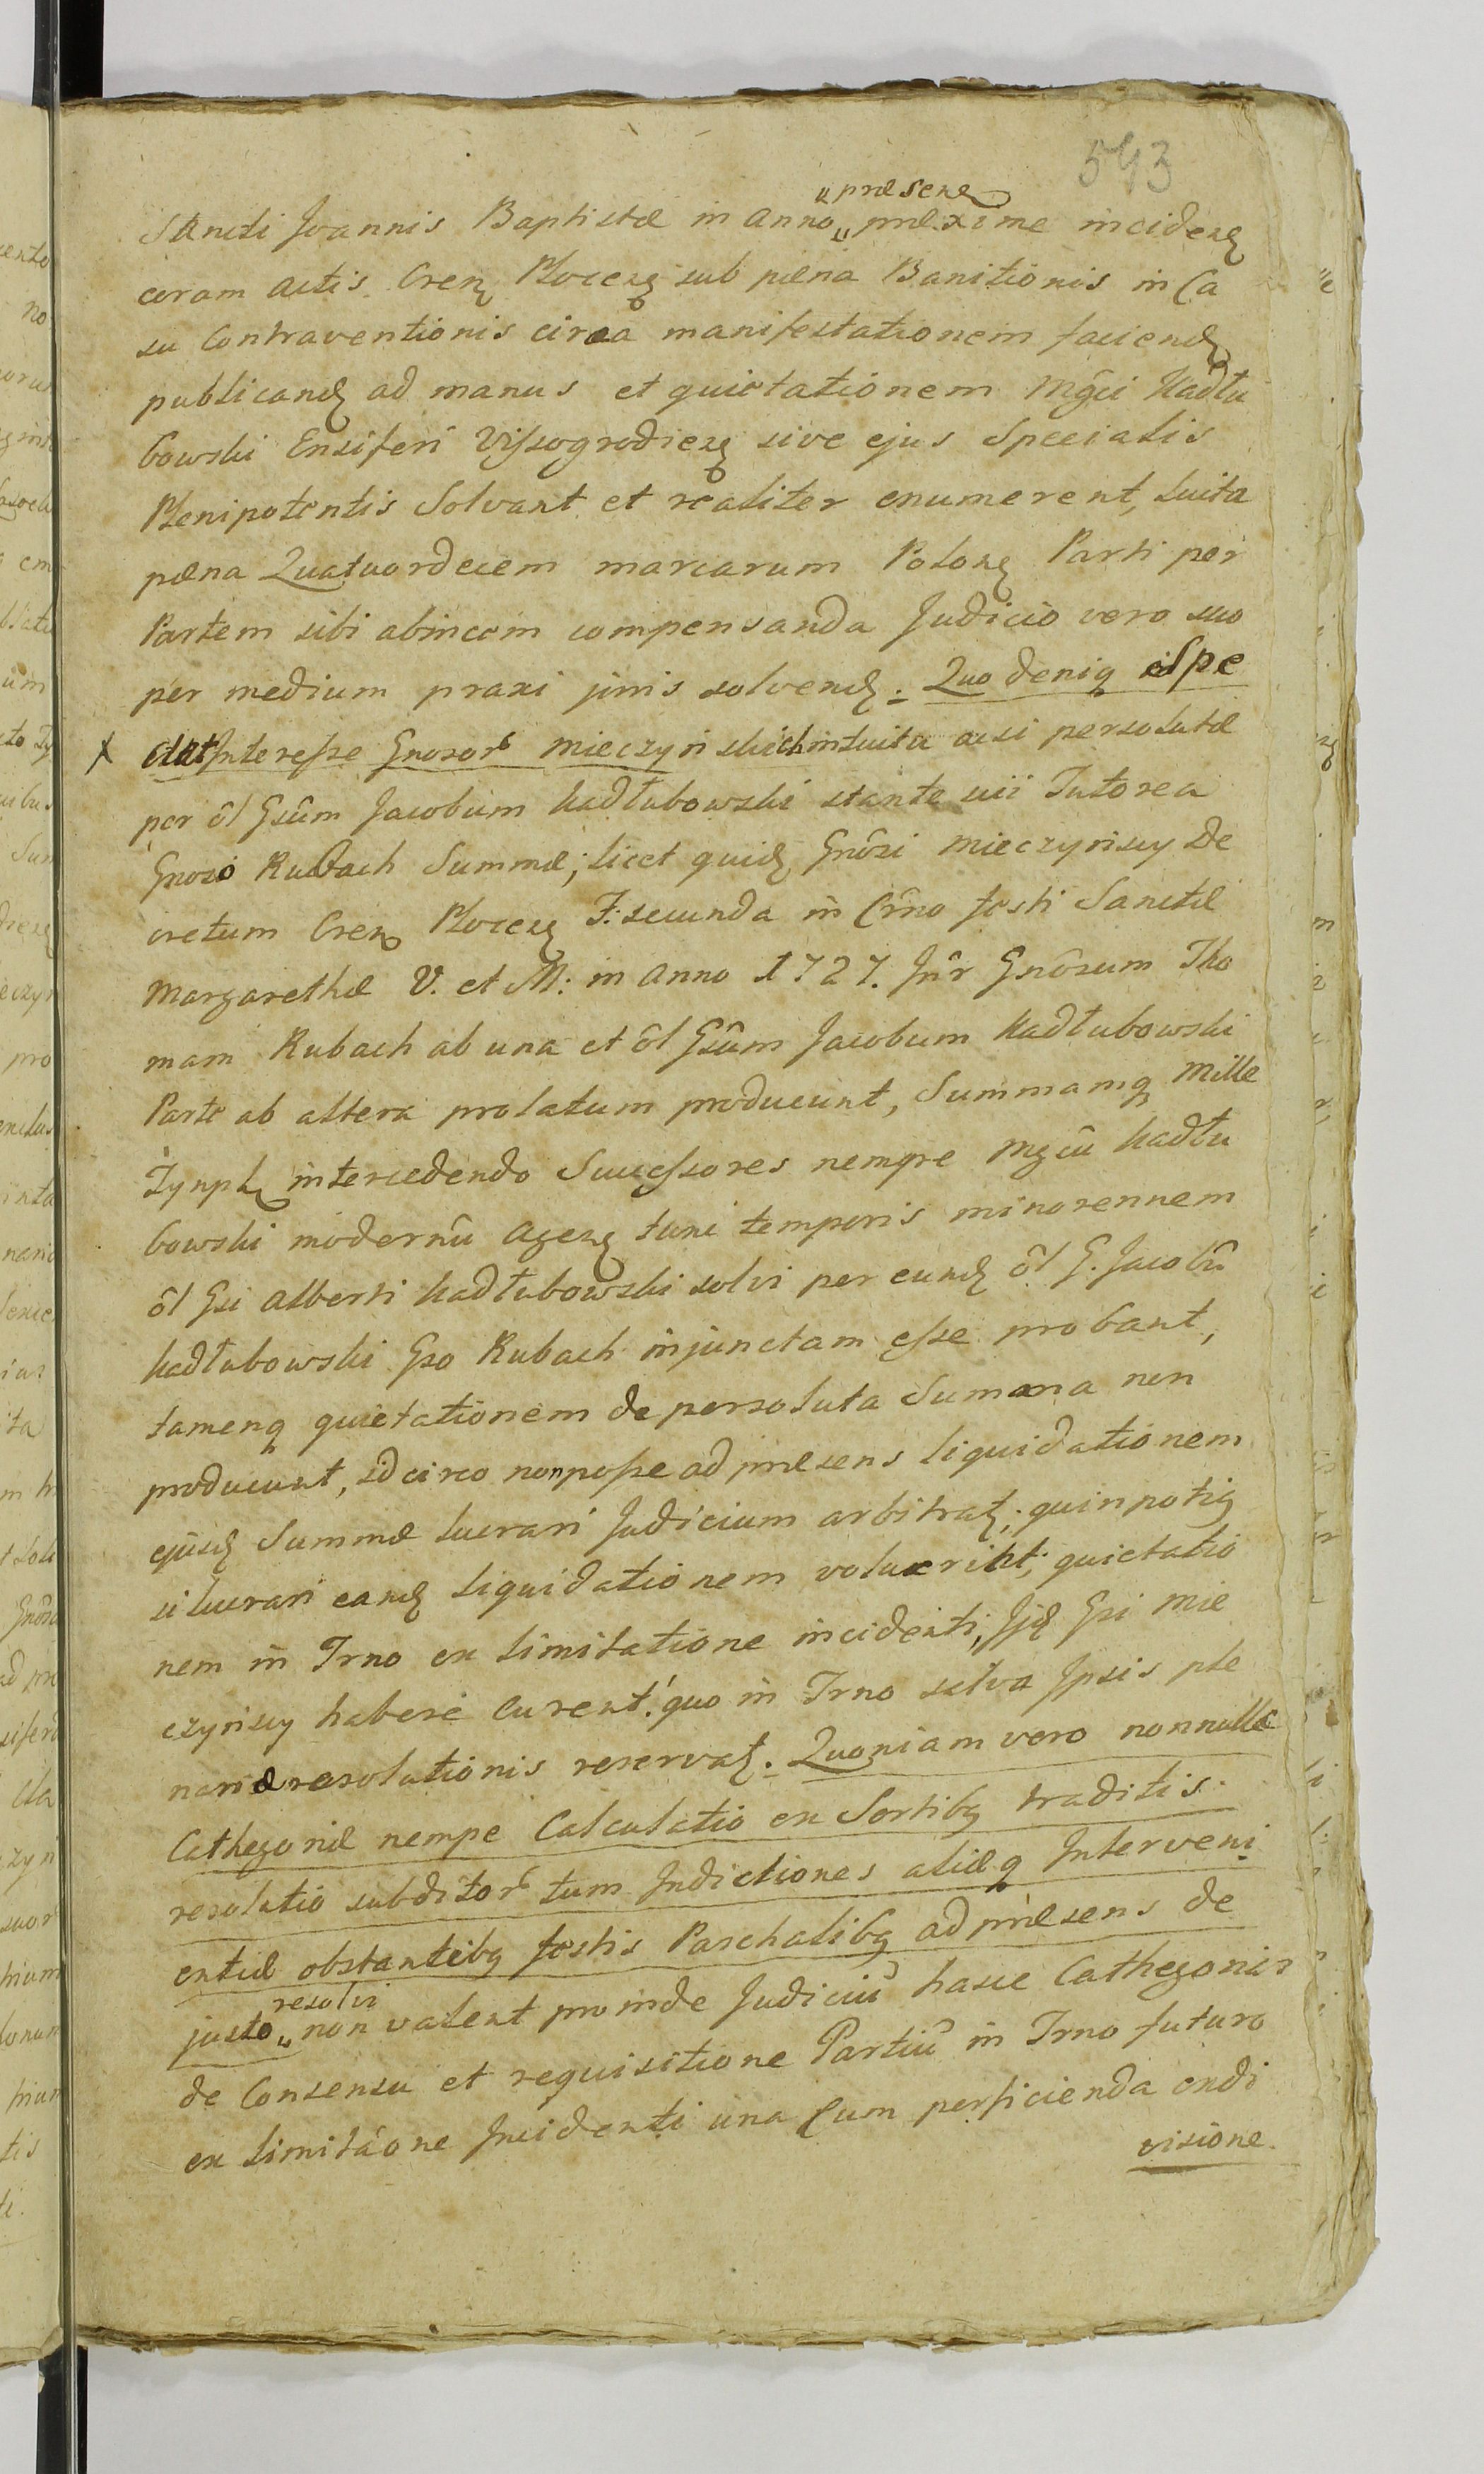 593
"præsenꝫ
Sancti Joannis Baptistæ in anno „ præxime incidenꝫ
coram actis Crenꝫ Plocenꝫ sub pæna Banitionis in Ca
su Contraventionis circa manifestationem faciendꝫ
publicandꝫ ad manus et quietationem Mgci Kadłu
bowski Ensiferi Vissogrodienꝫ sive ejus Specialis
Plenipotentis Solvant et realiter enumerent, luita
pæna Quatuordecem marcarum Polonꝫ Parti per
Partem sibi abincem compensanda Judicio vero suo
per medium praxi juris solvendꝫ. Quo deniqꝫ Spe
ctat Interesse Gnosorꝫ Mieczynskich intuitu acsi persolutæ
per ôl Gsûm Jacobum Kadłubowski stante sui Tutorea
Gnoso Rubach Summæ; licet quidꝫ Gnôsi Mieczynscy De
cretum Crenꝫ Plocenꝫ F: secunda in Crîno festi Sanctæ
Margarethæ V. et M: in anno 1727. Inr̂ Gnôsum Tho
mam Rubach ab una et ôl Gsûm Jacobum Kadłubowski
Parte ab altera prolatum producunt, Summamqꝫ Mille
Tynphꝫ intercedendo Successores nempe Mgcû Kadłu
bowski modernû Agenꝫ tunc temporis minorennem
ôl Gsi Alberti Kadłubowski solvi per eundꝫ ôl G. Jacobû
Kadłubowski Gso Rubach injunctam esse probant,
tamenqꝫ quietationem de persoluta Summa non
producunt, idcirco non posse ad præsens liquidationem
ejusdꝫ Summæ lucrari Judicium arbitratꝫ; quinpotiꝫ
si lucrari eandꝫ liquidationem voluerint; quietatio
nem in Trno ex limitatione incidenti, Jidꝫ Gsi Mie
czynscy habere curent! quo in Trno salva Ipsis ple
nariæ resolutionis reservatꝫ. Quoniam vero nonnullæ
Cathegoriæ nempe Calculatio ex Sortibꝫ traditis
resolutio subditorꝫ tum Indictiones aliæqꝫ Interveni
entiæ obstantibꝫ festis Paschalibꝫ ad præsens de
resolvi
justo „ non valent proinde Judiciû hasce Cathegorias
de Consensu et requisitione Partiû in Trno futuro
ex limitâone Incidenti una Cum perficienda endi
visione.